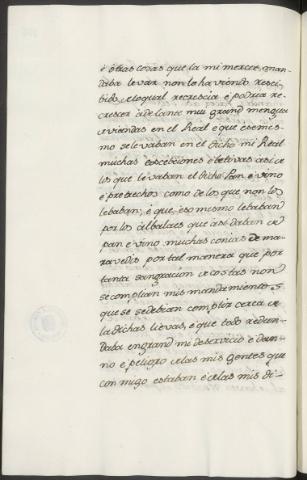 è otras cosas que la mi merced man-
daba levar non lo haviendo resci-
bido, de lo qual recrescia è podria re-
crescer adelante muy grand mengua
de viandas en el Real è que eso mes-
mo se levaban en el dicho mi Real
muchas è cohechos asi de
los que levaban el dicho Pan è vino
è pertrechos como de los que non los
lebaban, è que eso mismo lebaban
por los albalaes que asi daban de
pan è vino muchas contias de ma-
ravedis por tal manera que por
tanta è costas non
se complian mis mandamientos
que se debian complir cerca de
la dichas lievas, è que todo redun-
daba en grand mi deservicio è dan-
no è peligro de las mis gentes que
con migo estaban è de las mis di-